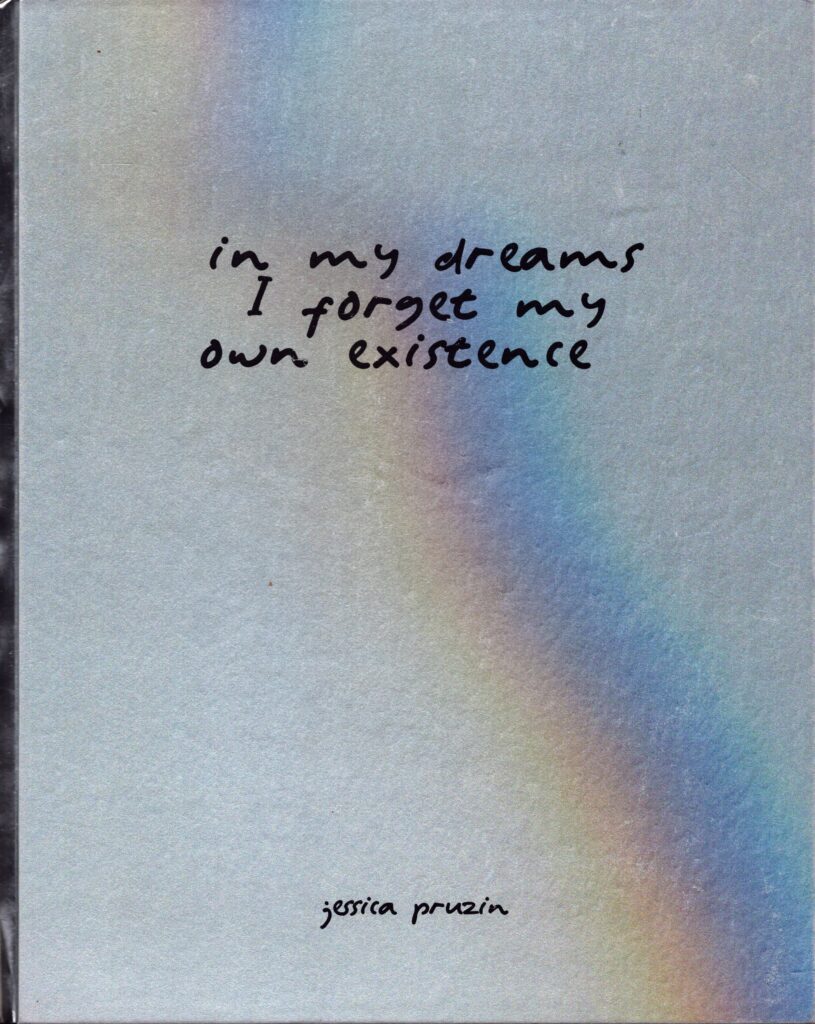 in my dreams
I forget my
own existence
jessica pruzin